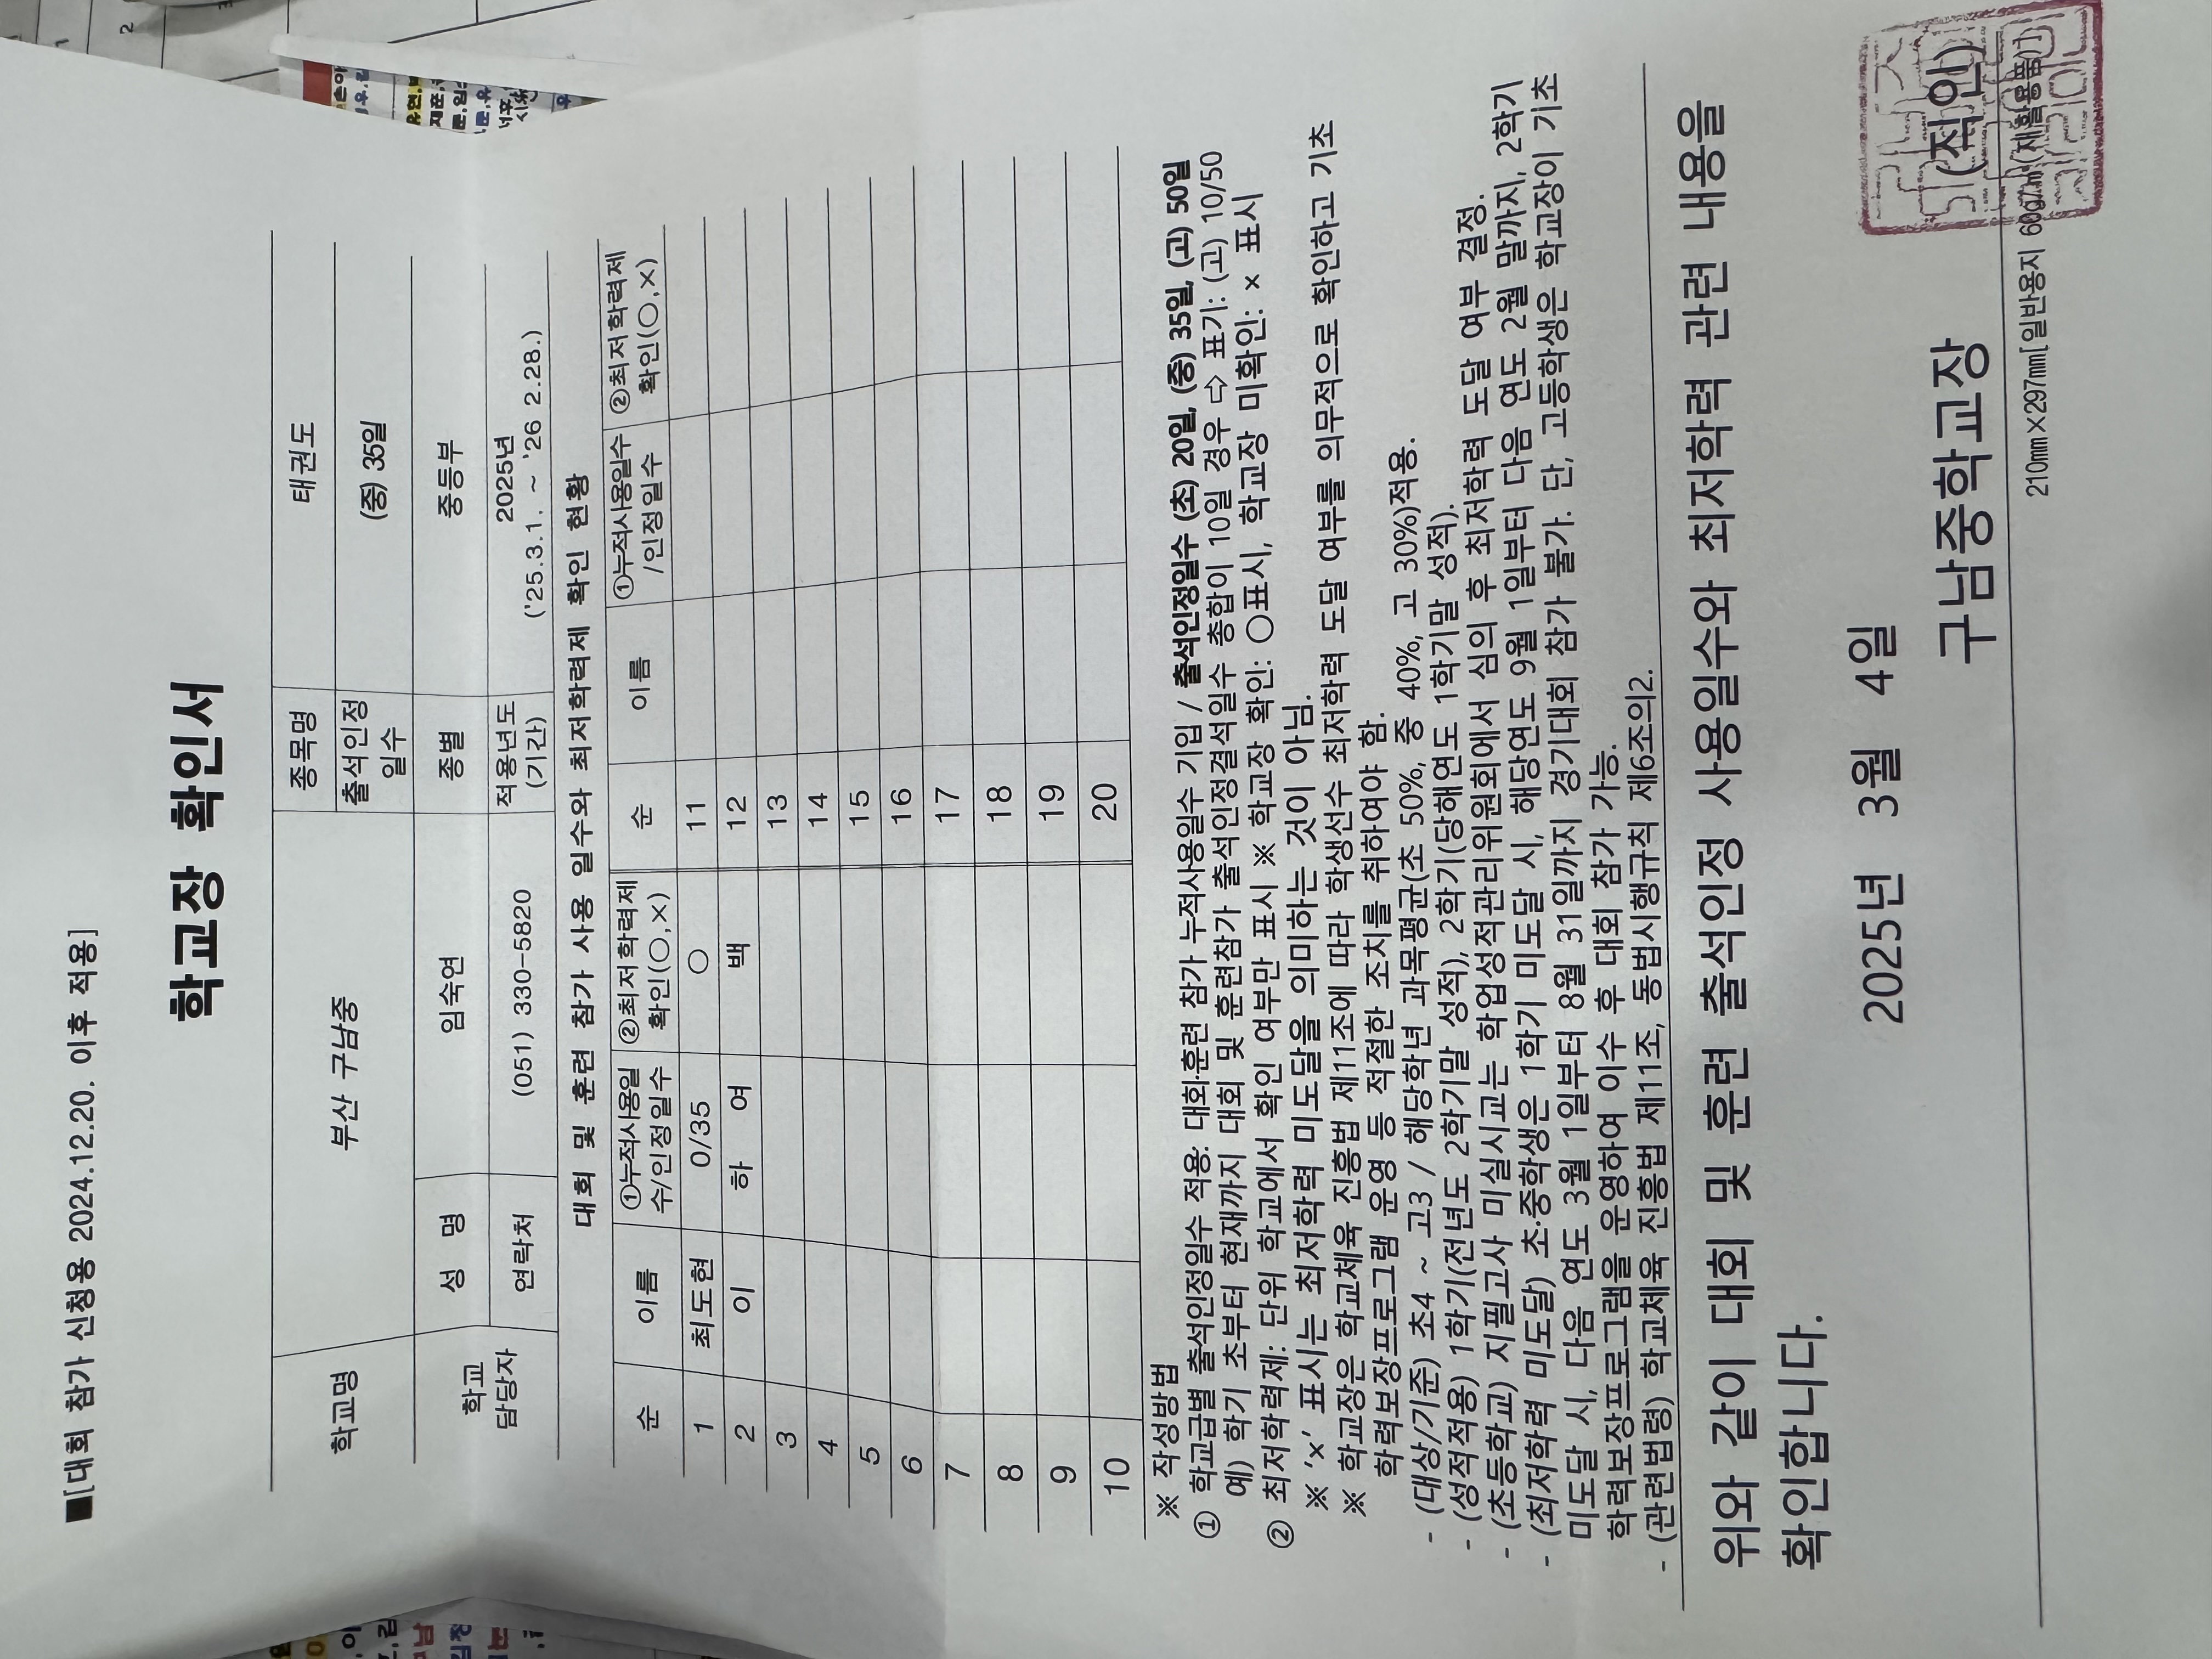 ■[대회 참가 신청용 2024.12.20. 이후 적용]
학교장 확인서
학교명 부산 구남중 종목명 태권도
출석인정 일수 (중) 35일
학교 담당자 성 명 임숙연 종별 중등부
연락처 (051) 330-5820 적용년도 (기간) 2025년 ('25.3.1. ~ '26 2.28.)
대회 및 훈련 참가 사용 일수와 최저학력제 확인 현황
순 이름 ①누적사용일수/인정일수 ②최저학력제 확인(○,×) 순 이름 ①누적사용일수/인정일수 ②최저학력제 확인(○,×)
1 최도현 0/35 ○ 11
2 이 하 여 백 12
3 13
4 14
5 15
6 16
7 17
8 18
9 19
10 20
※ 작성방법
① 학교급별 출석인정일수 적용: 대회·훈련 참가 누적사용일수 기입 / 출석인정일수 (초) 20일, (중) 35일, (고) 50일
예) 학기 초부터 현재까지 대회 및 훈련참가 출석인정결석일수 총합이 10일 경우 ⇨ 표기: (고) 10/50
② 최저학력제: 단위 학교에서 확인 여부만 표시 ※ 학교장 확인: ○표시, 학교장 미확인: × 표시
※ '×' 표시는 최저학력 미도달을 의미하는 것이 아님.
※ 학교장은 학교체육 진흥법 제11조에 따라 학생선수 최저학력 도달 여부를 의무적으로 확인하고 기초
학력보장프로그램 운영 등 적절한 조치를 취하여야 함.
- (대상/기준) 초4 ~ 고3 / 해당학년 과목평균(초 50%, 중 40%, 고 30%)적용.
- (성적적용) 1학기(전년도 2학기말 성적), 2학기(당해연도 1학기말 성적).
- (초등학교) 지필고사 미실시교는 학업성적관리위원회에서 심의 후 최저학력 도달 여부 결정.
- (최저학력 미도달) 초·중학생은 1학기 미도달 시, 해당연도 9월 1일부터 다음 연도 2월 말까지, 2학기
미도달 시, 다음 연도 3월 1일부터 8월 31일까지 경기대회 참가 불가. 단, 고등학생은 학교장이 기초
학력보장프로그램을 운영하여 이수 후 대회 참가 가능.
- (관련법령) 학교체육 진흥법 제11조, 동법시행규칙 제6조의2.
위와 같이 대회 및 훈련 출석인정 사용일수와 최저학력 관련 내용을
확인합니다.
2025년 3월 4일
구남중학교장 (직인)
210㎜×297㎜[일반용지 60g/㎡(재활용품)]